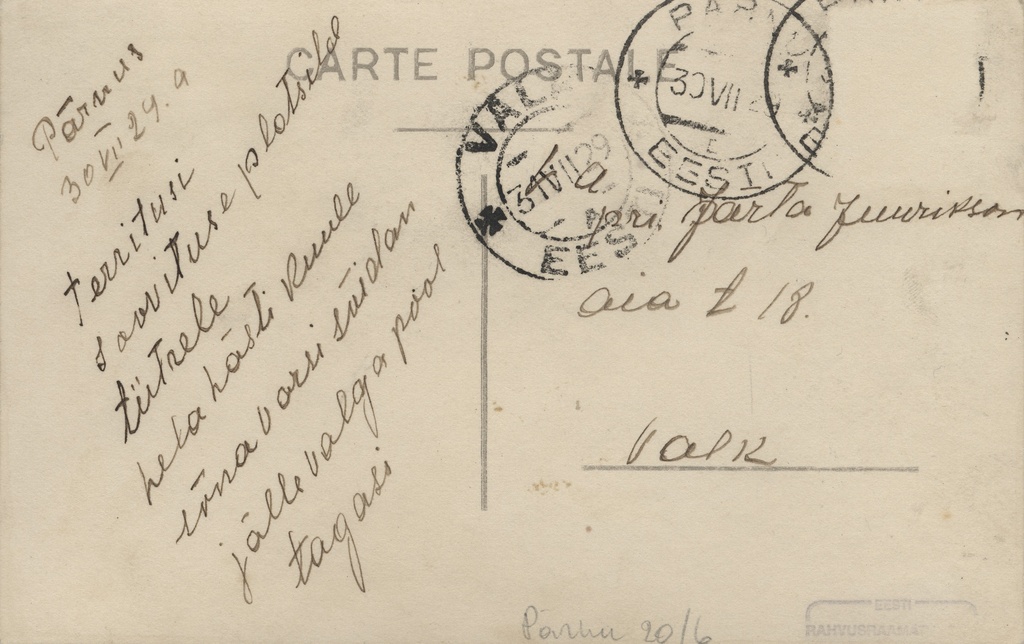 CARTE POSTALE
Pärnus
30 VII 29. a
territusi
soovituse plotsild
tütrele
hela hästi kuule
sõna varsi sõidan
jälle valga pool
tagasi
PÄRNU
30 VII 29
EESTI
VALK
31 VII 29
EESTI
pr. Jarta
aia t 18.
Valk
Pärnu 20/6
EESTI
RAHVUSRAAMAT